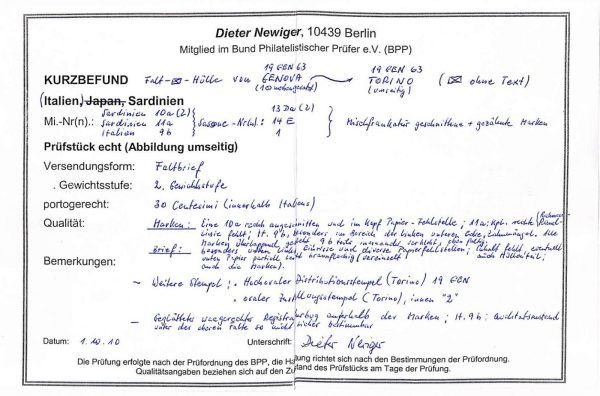 Dieter Newiger, 10439 Berlin
Mitglied im Bund Philatelistischer Prüfer e.V. (BPP)
19 GEN 63 19 GEN 63
KURZBEFUND Falt-✉-Hülle von GENOVA → TORINO (✉ ohne Text)
(umseitig)
(Italien,) Japan, Sardinien
Mi.-Nr(n).: Sardinien 10a (2) 13 Da (2)
Sardinien 11a Sassone-Nr(n).: 14 E Mischfrankatur geschnittene + gezähnte Marken
Italien 9b 1
Prüfstück echt (Abbildung umseitig)
Versendungsform: Faltbrief
Gewichtsstufe: 2. Gewichtsstufe
portogerecht: 30 Centesimi (innerhalb Italiens)
Qualität: Marken: Eine 10a rechts angeschnitten und im Kopf Papier-Fehlstelle; 11a: Kpb. rechte
linie fehlt; It. 9b, besonders im Bereich der linken unteren Ecke, Zahnmängel. Alle
Marken überlappend geklebt
Brief: besonders und diverse Papierfehlstellen; Inhalt fehlt, eventuell
Bemerkungen: unten Papier partiell braunfleckig (vereinzelt
auch die Marken).
– Weitere Stempel: . Hochovaler Distributionsstempel (Torino) 19 GEN
. ovaler Zustellungsstempel (Torino), innen "2"
– Geglätteter waagerechter Registraturbug außerhalb der Marken; It. 9b: Qualitätszustand
unter der oberen Falte so nicht sicher bestimmbar
Datum: 1.10.10 Unterschrift: Dieter Newiger
Die Prüfung erfolgte nach der Prüfordnung des BPP, die Ha tung richtet sich nach den Bestimmungen der Prüfordnung.
Qualitätsangaben beziehen sich auf den Zu tand des Prüfstücks am Tage der Prüfung.